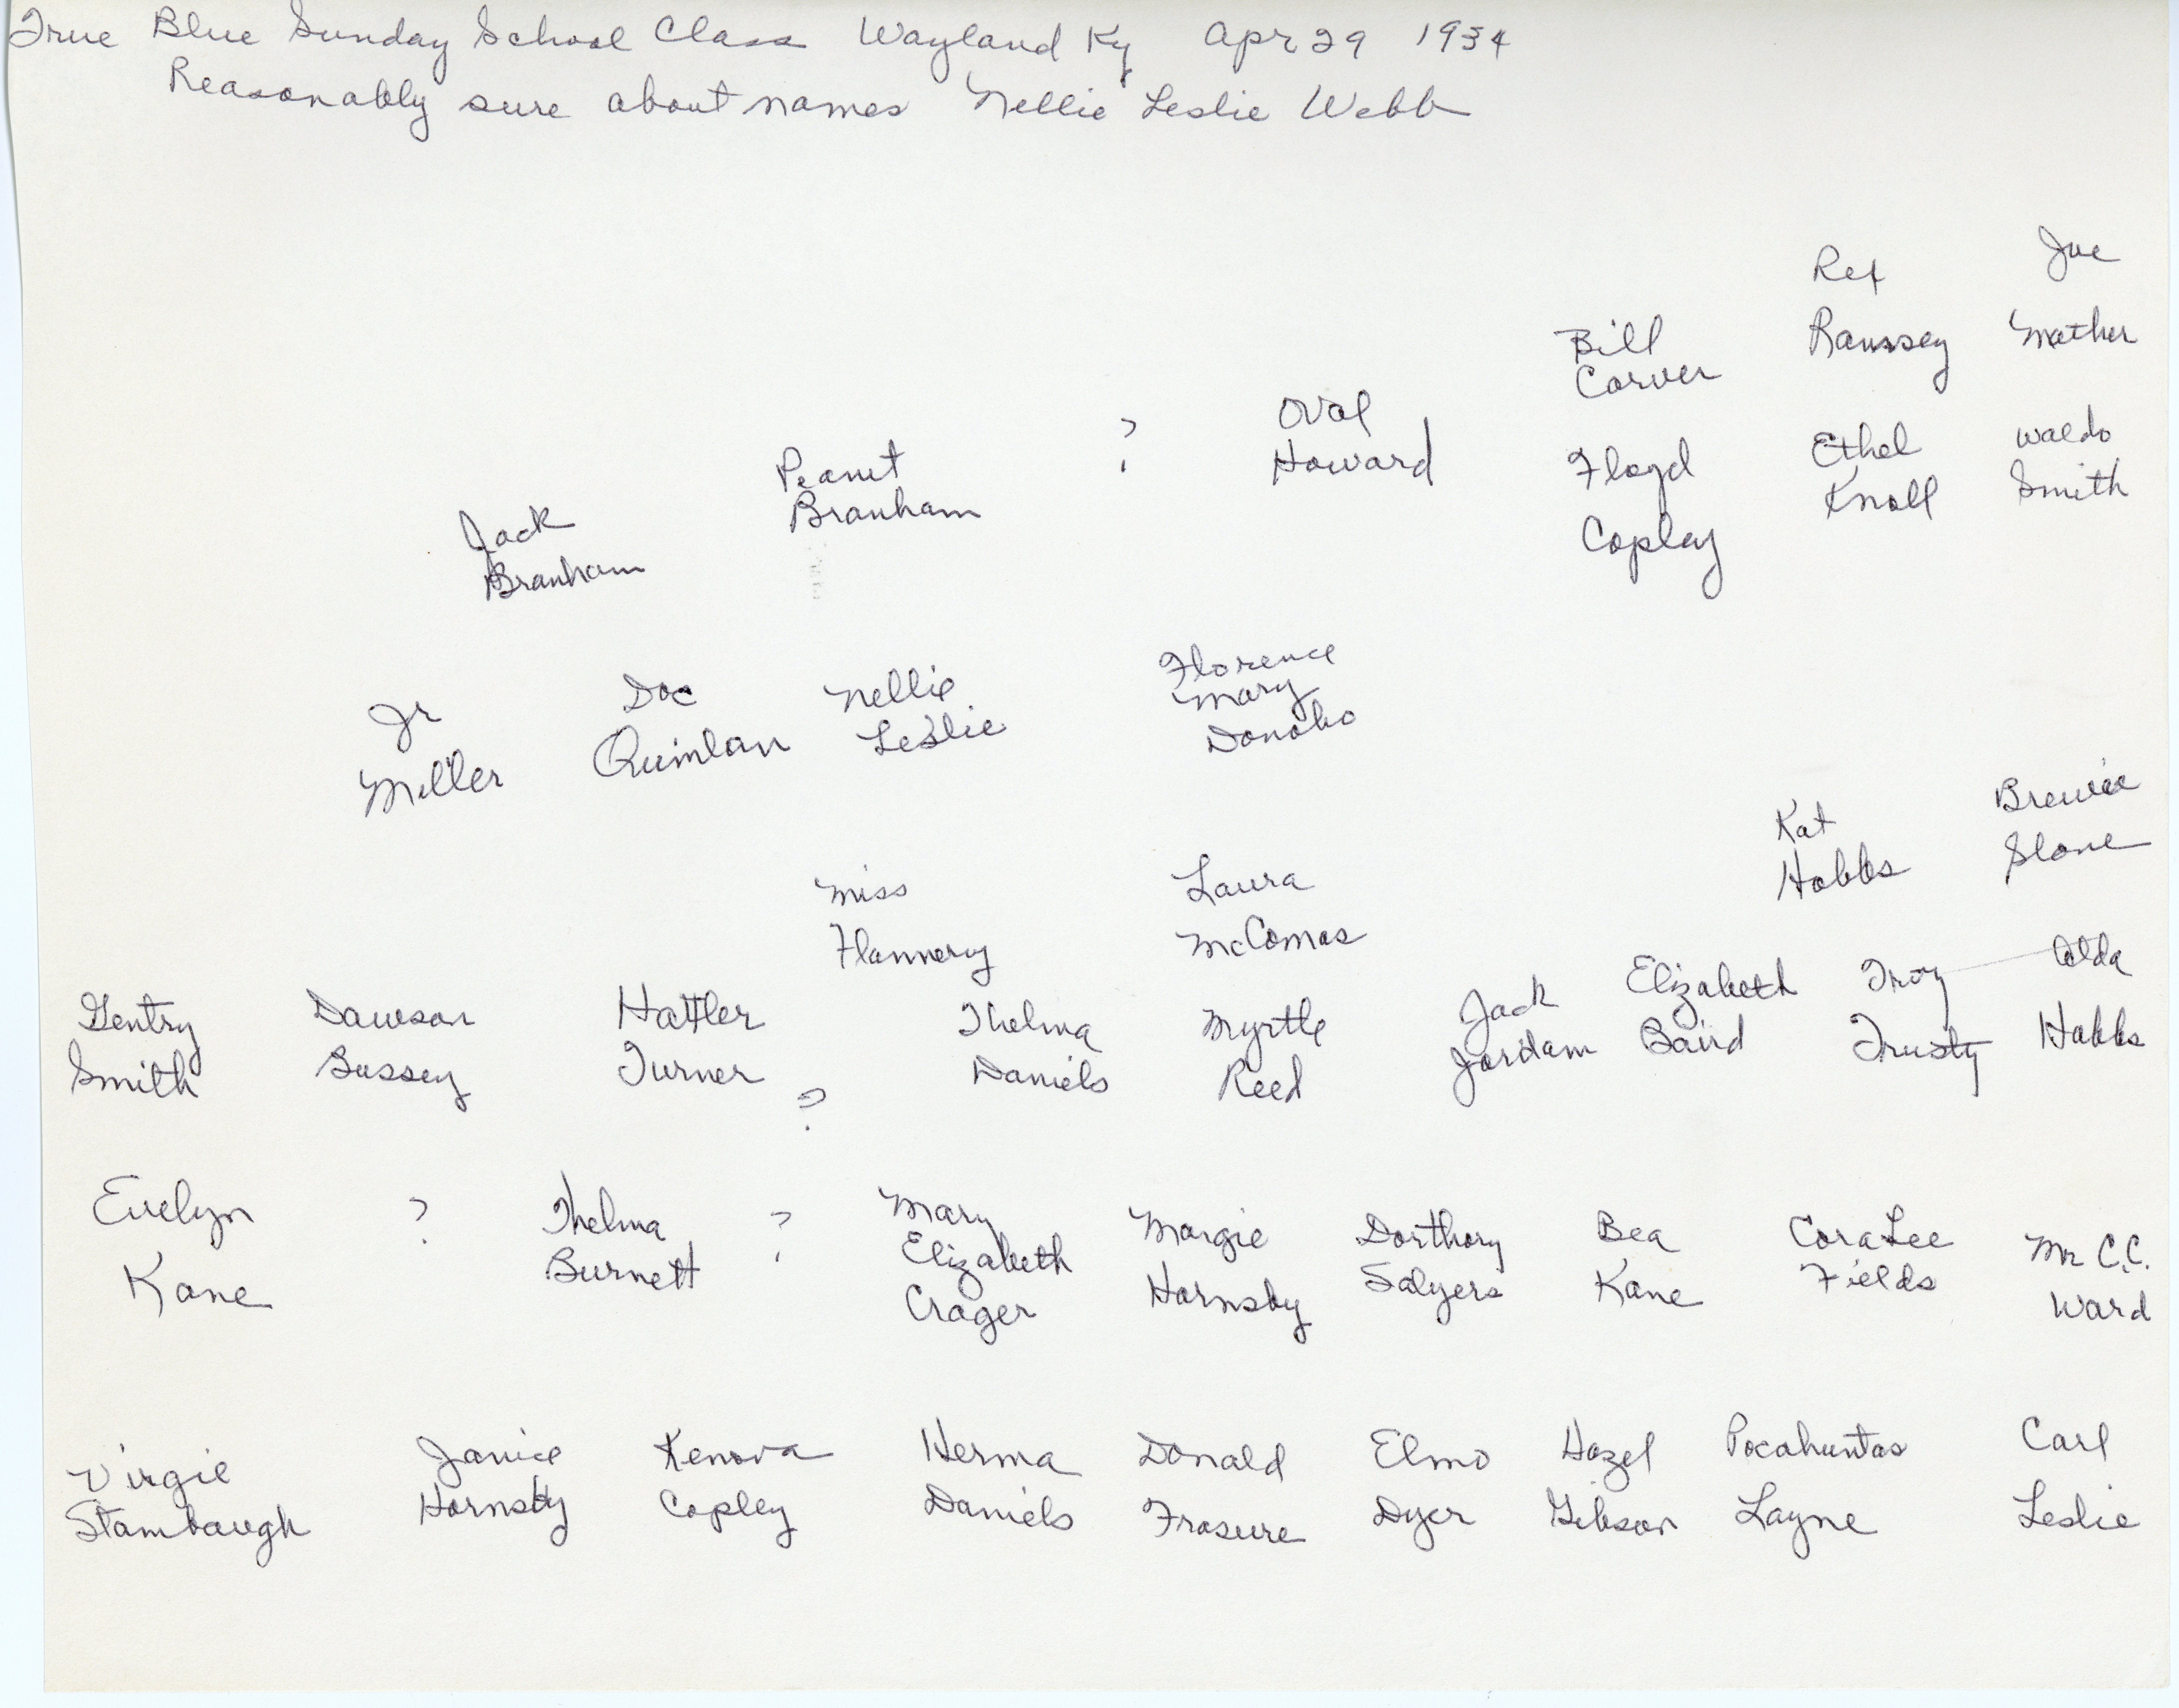 True Blue Sunday School Class Wayland Ky Apr 29 1934
Reasonably sure about names Nellie Leslie Webb
Rex Joe
Bill Ramsey Mather
Carver
Oval
? Howard Floyd Ethel Waldo
Peanut Copley Knoll Smith
Jack Branham
Branham
Florence
Jr Doc Nellie Mary
Miller Quinlan Leslie Donoho
Kat Brewie
Hobbs Slone
Miss Laura
Flannery McComas
Gentry Dawson Hattler Thelma Myrtle Jack Elizabeth Troy Alda
Smith Bussey Turner ? Daniels Reed Jordam Baird Trusty Hobbs
Evelyn ? Thelma ? Mary Margie Dorthory Bea Cora Lee Mr C.C.
Kane Burnett Elizabeth Hornsby Salyers Kane Fields Ward
Crager
Virgie Janice Kenova Herma Donald Elmo Hazel Pocahuntas Carl
Stambaugh Hornsby Copley Daniels Frasure Dyer Gibson Layne Leslie